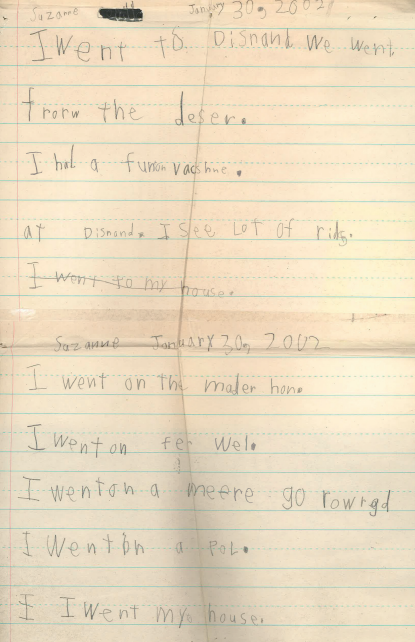 Suzanne January 30, 2002
I Went to Disnand We went
frorw the deser.
I had a funon vacshne.
at Disnand. I see Lot of rids.
I went to my house.
Suzanne January 30, 2002
I went on the mader hon.
I went on fer wel.
I went on a meere go rowrgd
I Went on a Pot.
I I Went my house.